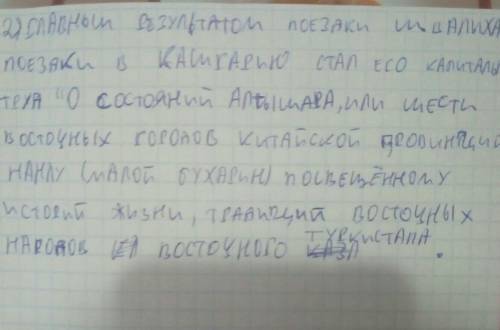 2) главным результатом поезаки швалиха
поезаки в Кашгарию стал его капиталы
труа "О состояний Алтышара, или шести
восточных городов китайской провинций
Нанлу (малой бухарин) посвещённому
историй жизни, традиций восточных
народов восточного туркистапа.